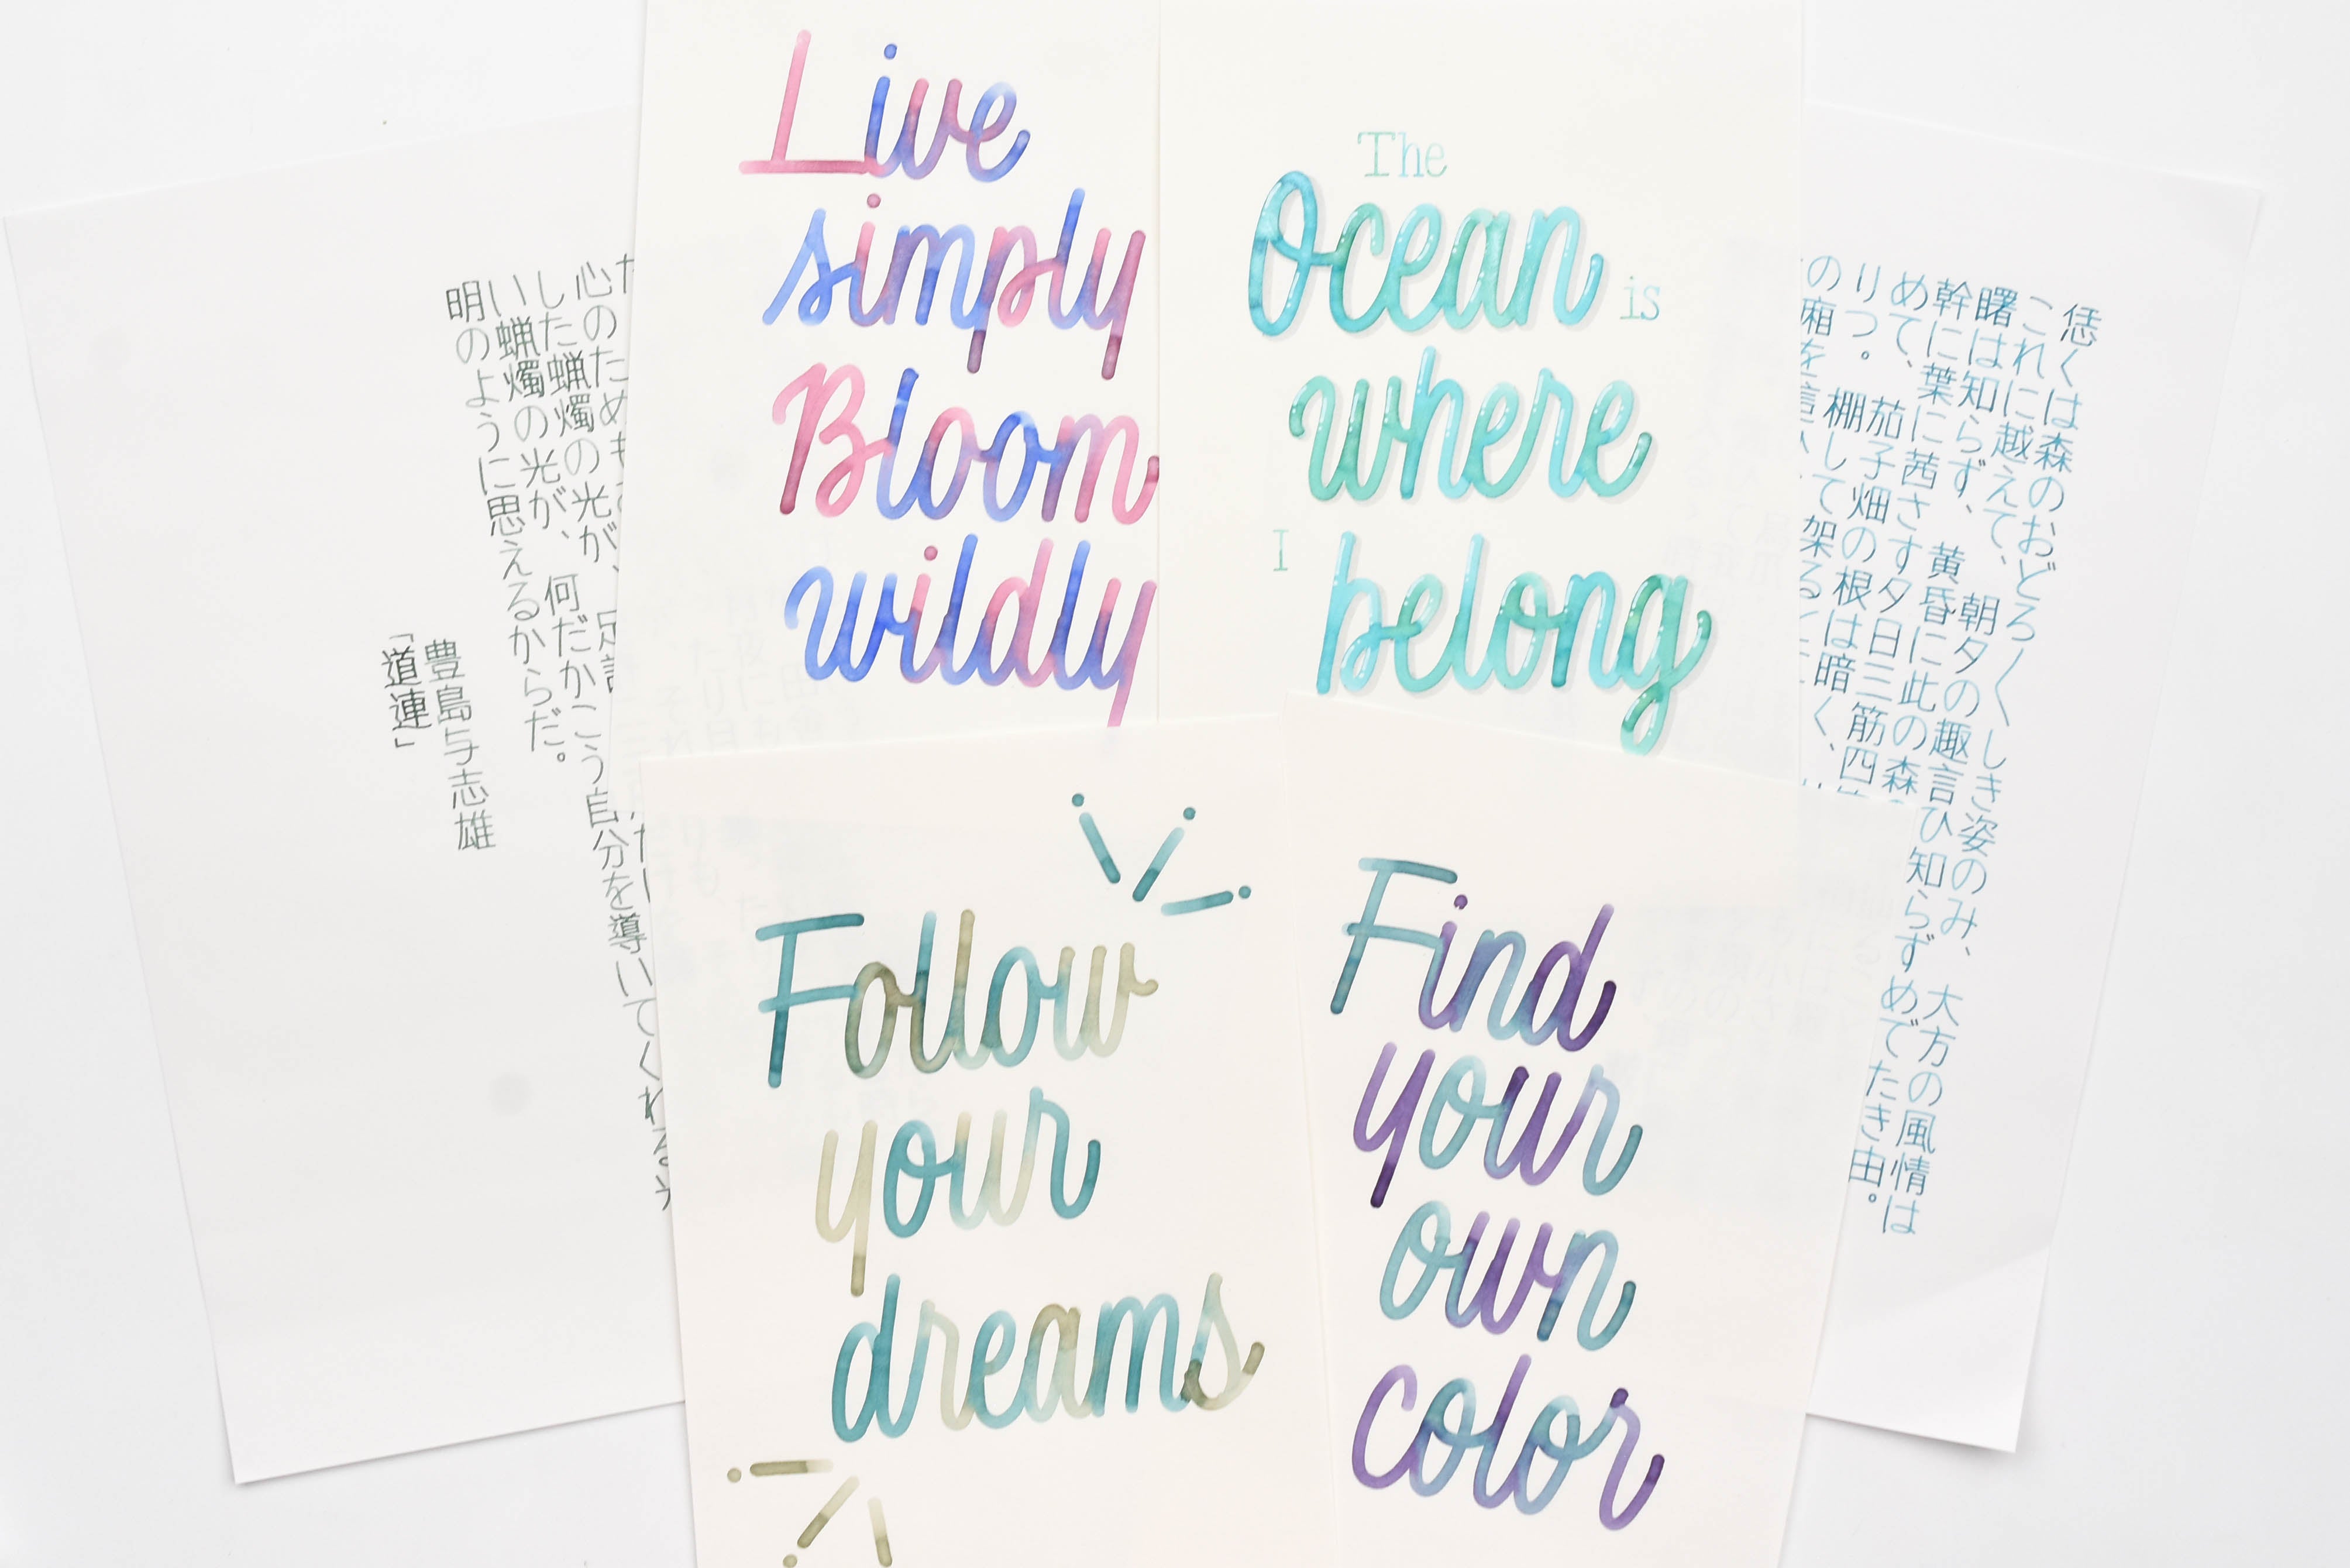 恁くは森のおどろ〳〵しき姿のみ、大方の風情は
これに越えて、朝夕の趣言ひ知らずめでたき由。
曙は知らず、黄昏に此の森
幹に葉に茜さす夕日三筋四
めて、茄子畑の根は暗く、
りつ。棚して架ると
の廂を這
The
Ocean is
where
I belong
Live
simply
Bloom
wildly
Find
your
own
color
Follow
your
dreams
心のためも
した蝋燭の光が、足許
い蝋燭の光が、何だかこう自分を導いてくれる光
明のように思えるからだ。
豊島与志雄
「道連」